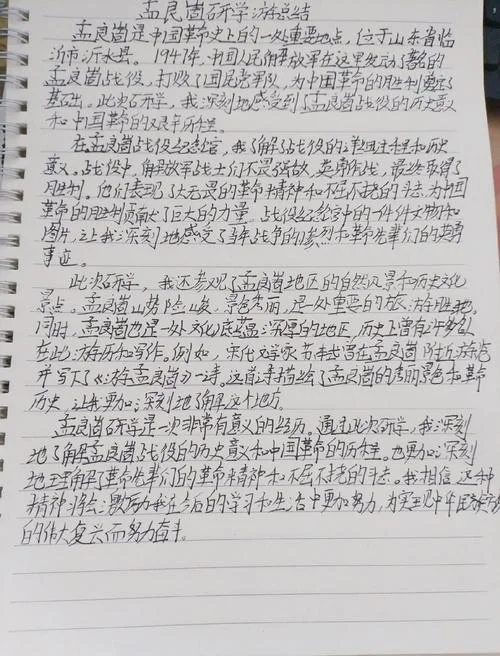 孟良崮研学游总结
孟良崮是中国革命史上的一处重要地点，位于山东省临
沂市沂水县。1947年，中国人民解放军在这里发动了著名的
孟良崮战役，打败了国民党军队，为中国革命的胜利奠定了
基础。此次研学，我深刻地感受到了孟良崮战役的历史意义
和中国革命的艰辛历程。
在孟良崮战役纪念馆，我了解了战役的详细过程和历史
意义。战役中，解放军战士们不畏强敌，英勇作战，最终取得了
胜利。他们表现了大无畏的革命精神和不屈不挠的斗志，为中国
革命的胜利贡献了巨大的力量。战役纪念馆中的一件件文物和
图片，让我深刻地感受了当年战争的惨烈和革命先辈们的英勇
事迹。
此次研学，我还参观了孟良崮地区的自然风景和历史文化
景点。孟良崮山势险峻，景色秀丽，是一处重要的旅游胜地。
同时，孟良崮也是一处文化底蕴深厚的地区，历史上曾有许多名人
在此游历和写作。例如，宋代文学家苏轼曾在孟良崮附近游览
并写下了《游孟良崮》一诗。这首诗描绘了孟良崮的秀丽景色和革命
历史，让我更加深刻地了解这个地方。
孟良崮研学是一次非常有意义的经历。通过此次研学，我深刻
地了解孟良崮战役的历史意义和中国革命的历程。也更加深刻
地理解了革命先辈们的革命精神和不屈不挠的斗志。我相信，这种
精神将会激励我在今后的学习和生活中更加努力，为实现中华民族
的伟大复兴而努力奋斗。